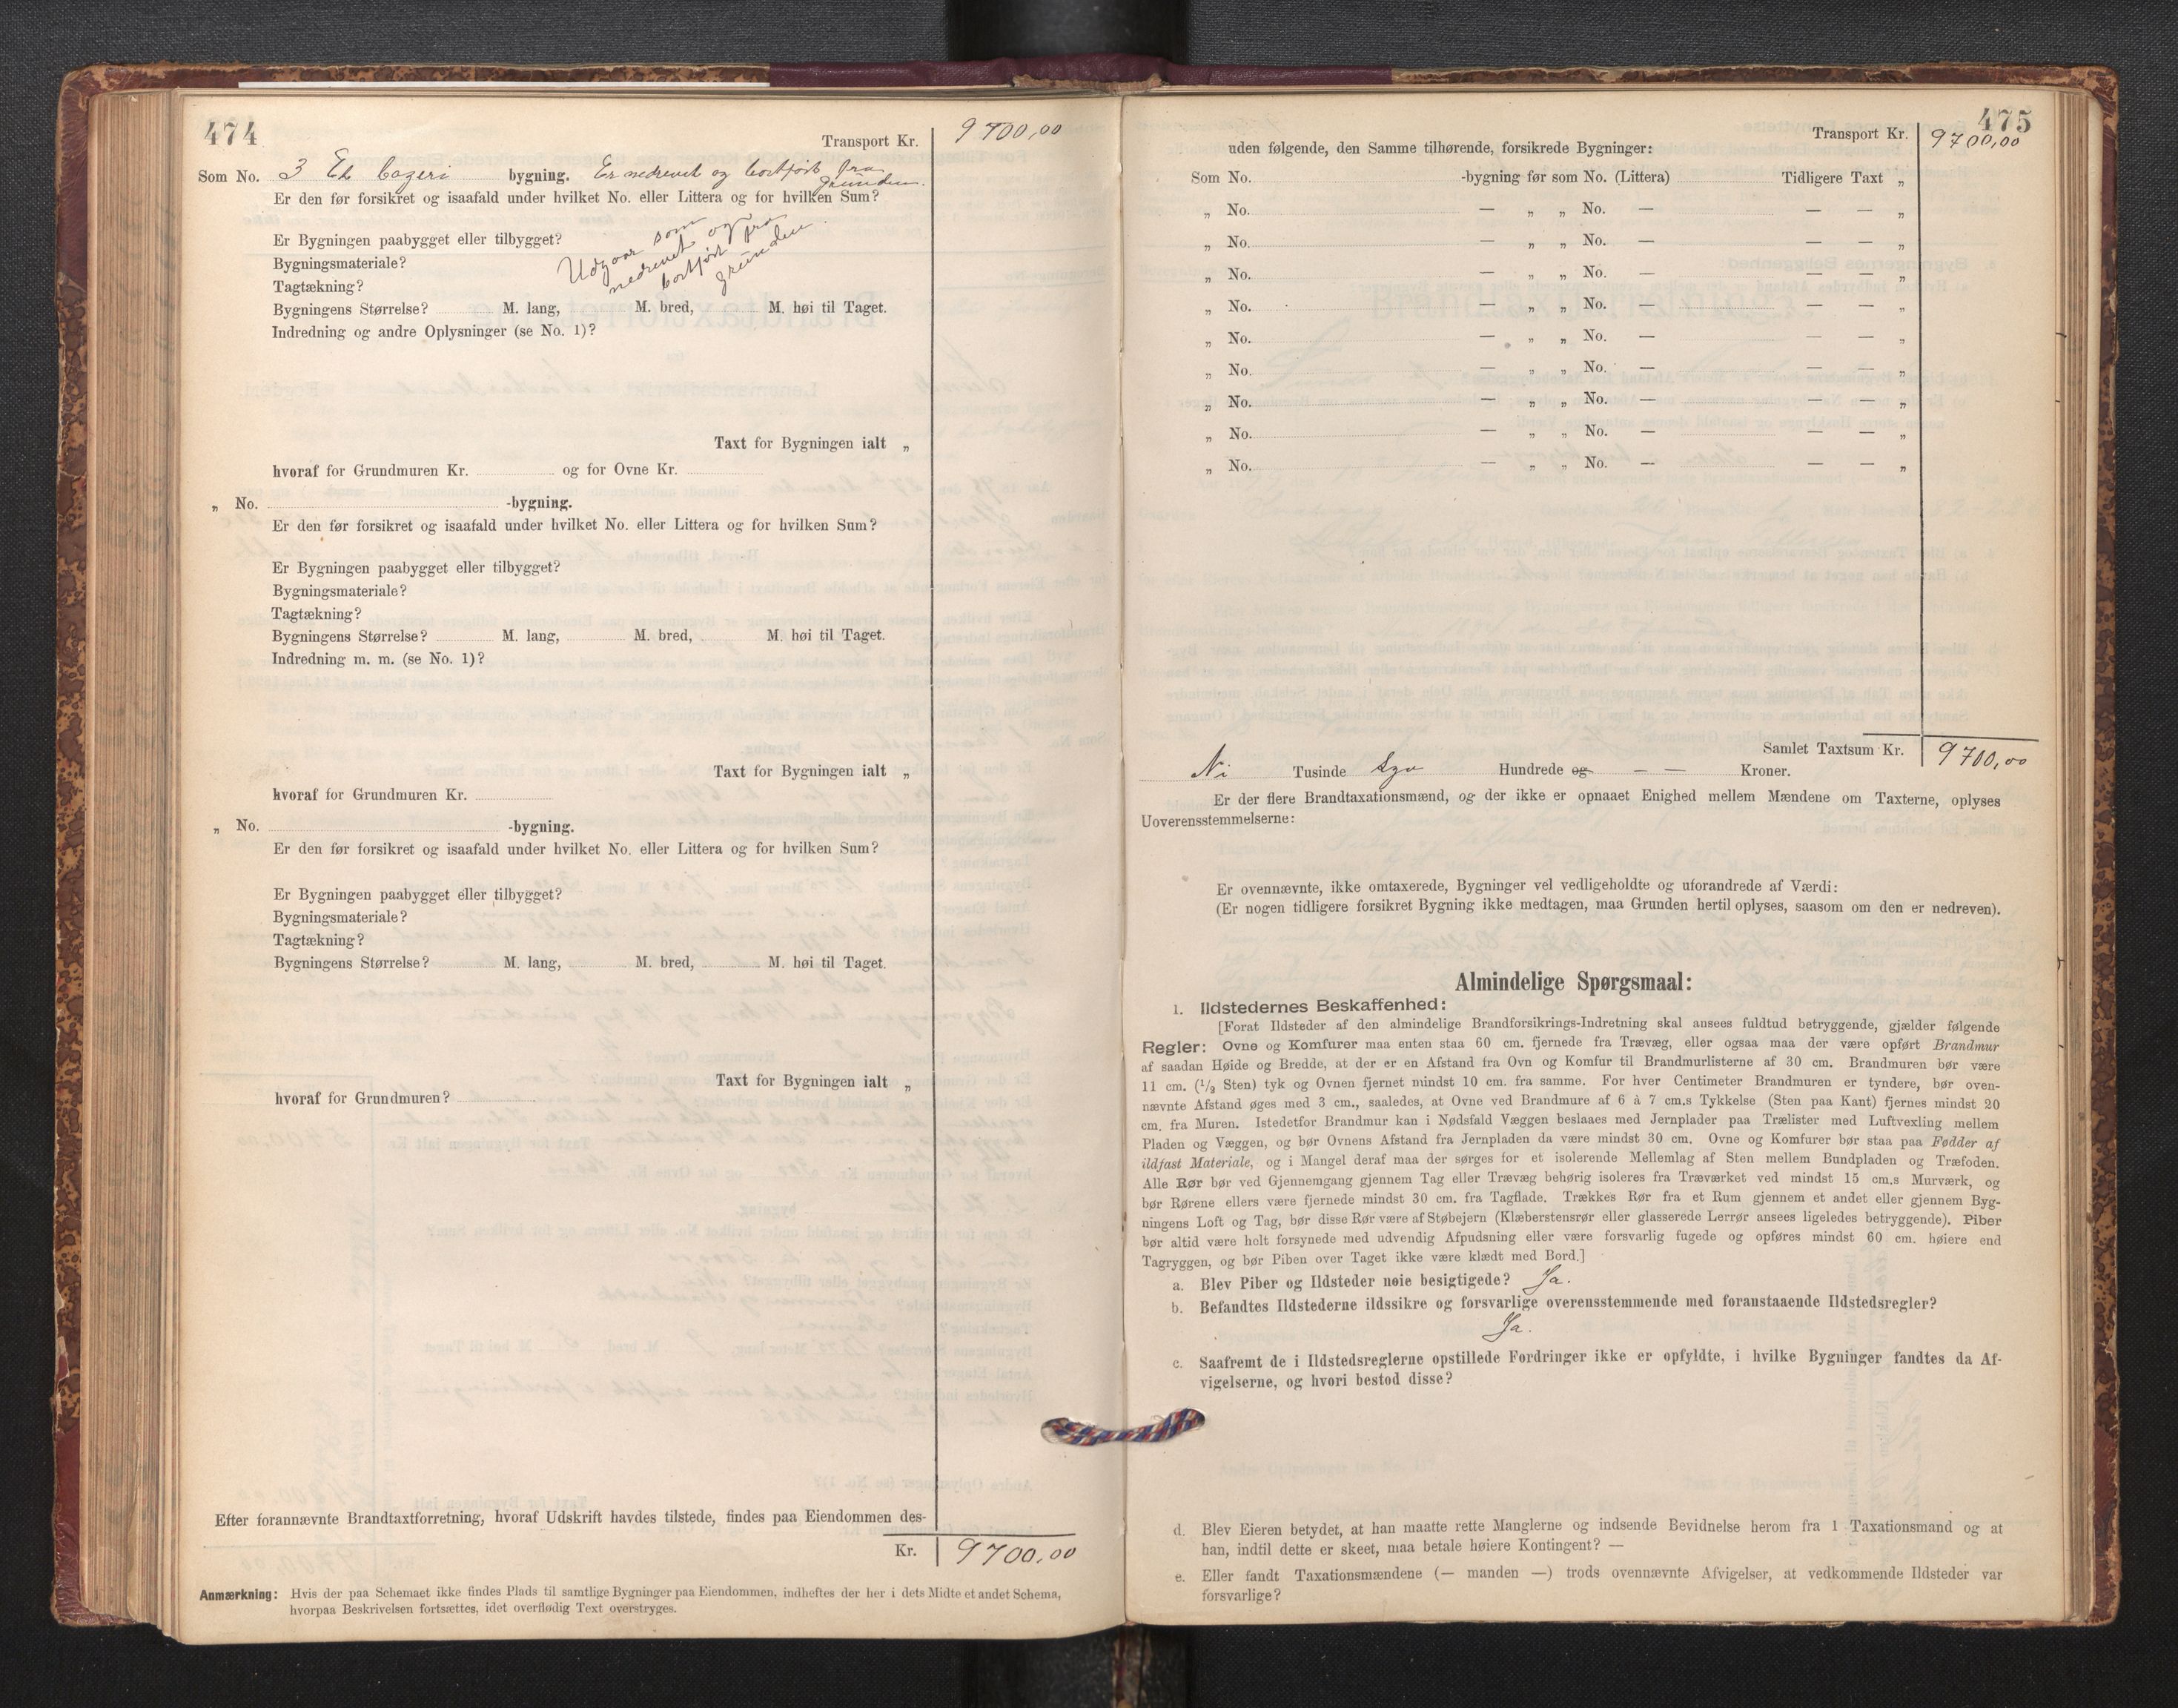 474
Transport Kr. 9700,00
Som No. 3 Et bageri bygning. Er nedrevet og bortført fra
grunden.
Er den før forsikret og isaafald under hvilket No. eller Littera og for hvilken Sum?
Er Bygningen paabygget eller tilbygget?
Udgaar som
nedrevet og
bortført fra
grunden
Bygningsmateriale?
Tagtækning?
Bygningens Størrelse? M. lang, M. bred, M. høi til Taget.
Indredning og andre Oplysninger (se No. 1)?
Taxt for Bygningen ialt „
hvoraf for Grundmuren Kr. og for Ovne Kr.
„ No. -bygning.
Er den før forsikret og isaafald under hvilket No. eller Littera og for hvilken Sum?
Er Bygningen paabygget eller tilbygget?
Bygningsmateriale?
Tagtækning?
Bygningens Størrelse? M. lang, M. bred, M. høi til Taget.
Indredning m. m. (se No. 1)?
Taxt for Bygningen ialt „
hvoraf for Grundmuren Kr.
„ No. -bygning.
Er den før forsikret og isaafald under hvilket No. eller Littera og for hvilken Sum?
Er Bygningen paabygget eller tilbygget?
Bygningsmateriale?
Tagtækning?
Bygningens Størrelse? M. lang, M. bred, M. høi til Taget.
Taxt for Bygningen ialt „
hvoraf for Grundmuren?
Efter forannævnte Brandtaxtforretning, hvoraf Udskrift havdes tilstede, findes paa Eiendommen des-
Kr. 9700,00
Anmærkning: Hvis der paa Schemaet ikke findes Plads til samtlige Bygninger paa Eiendommen, indheftes der her i dets Midte et andet Schema,
hvorpaa Beskrivelsen fortsættes, idet overflødig Text overstryges.
475
Transport Kr. 9700,00
uden følgende, den Samme tilhørende, forsikrede Bygninger:
Som No. -bygning før som No. (Littera) Tidligere Taxt „
„ No. — „ „ No. — — — „
„ No. — „ „ No. — — — „
„ No. — „ „ No. — — — „
„ No. — „ „ No. — — — „
„ No. — „ „ No. — — — „
„ No. — „ „ No. — — — „
„ No. — „ „ No. — — — „
„ No. — „ „ No. — — — „
„ No. — „ „ No. — — — „
Samlet Taxtsum Kr. 9700,00
Ni Tusinde syv Hundrede og — — Kroner.
Er der flere Brandtaxationsmænd, og der ikke er opnaaet Enighed mellem Mændene om Taxterne, oplyses
Uoverensstemmelserne:
Er ovennævnte, ikke omtaxerede, Bygninger vel vedligeholdte og uforandrede af Værdi:
(Er nogen tidligere forsikret Bygning ikke medtagen, maa Grunden hertil oplyses, saasom om den er nedreven).
Almindelige Spørgsmaal:
1. Ildstedernes Beskaffenhed:
[Forat Ildsteder af den almindelige Brandforsikrings-Indretning skal ansees fuldtud betryggende, gjælder følgende
Regler: Ovne og Komfurer maa enten staa 60 cm. fjernede fra Trævæg, eller ogsaa maa der være opført Brandmur
af saadan Høide og Bredde, at der er en Afstand fra Ovn og Komfur til Brandmurlisterne af 30 cm. Brandmuren bør være
11 cm. (1/2 Sten) tyk og Ovnen fjernet mindst 10 cm. fra samme. For hver Centimeter Brandmuren er tyndere, bør oven-
nævnte Afstand øges med 3 cm., saaledes, at Ovne ved Brandmure af 6 à 7 cm.s Tykkelse (Sten paa Kant) fjernes mindst 20
cm. fra Muren. Istedetfor Brandmur kan i Nødsfald Væggen beslaaes med Jernplader paa Trælister med Luftvexling mellem
Pladen og Væggen, og bør Ovnens Afstand fra Jernpladen da være mindst 30 cm. Ovne og Komfurer bør staa paa Fødder af
ildfast Materiale, og i Mangel deraf maa der sørges for et isolerende Mellemlag af Sten mellem Bundpladen og Træfoden.
Alle Rør bør ved Gjennemgang gjennem Tag eller Trævæg behørig isoleres fra Træværket ved mindst 15 cm.s Murværk, og
bør Rørene ellers være fjernede mindst 30 cm. fra Tagflade. Trækkes Rør fra et Rum gjennem et andet eller gjennem Byg-
ningens Loft og Tag, bør disse Rør være af Støbejern (Klæberstensrør eller glasserede Lerrør ansees ligeledes betryggende). Piber
bør altid være helt forsynede med udvendig Afpudsning eller være forsvarlig fugede og opføres mindst 60 cm. høiere end
Tagryggen, og bør Piben over Taget ikke være klædt med Bord.]
a. Blev Piber og Ildsteder nøie besigtigede? Ja.
b. Befandtes Ildstederne ildssikre og forsvarlige overensstemmende med foranstaaende Ildstedsregler?
Ja.
c. Saafremt de i Ildstedsreglerne opstillede Fordringer ikke er opfyldte, i hvilke Bygninger fandtes da Af-
vigelserne, og hvori bestod disse?
d. Blev Eieren betydet, at han maatte rette Manglerne og indsende Bevidnelse herom fra 1 Taxationsmand og at
han, indtil dette er skeet, maa betale høiere Kontingent? —
e. Eller fandt Taxationsmændene (— manden —) trods ovennævnte Afvigelser, at vedkommende Ildsteder var
forsvarlige?